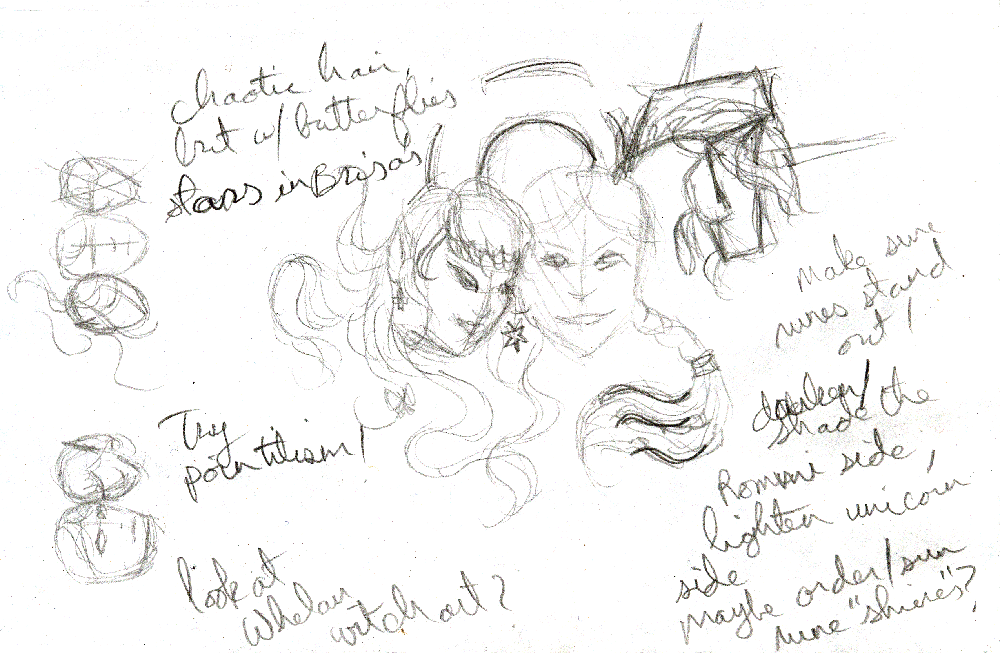 chaotic hair,
but w/ butterflies
stars in Brisas
Make sure
runes stand
out!
darken/
shade the
Rommi side,
lighten unicorn
side
maybe order/sun
rune "shines"?
Try
pointilism!
look at
Whelan
witch art?